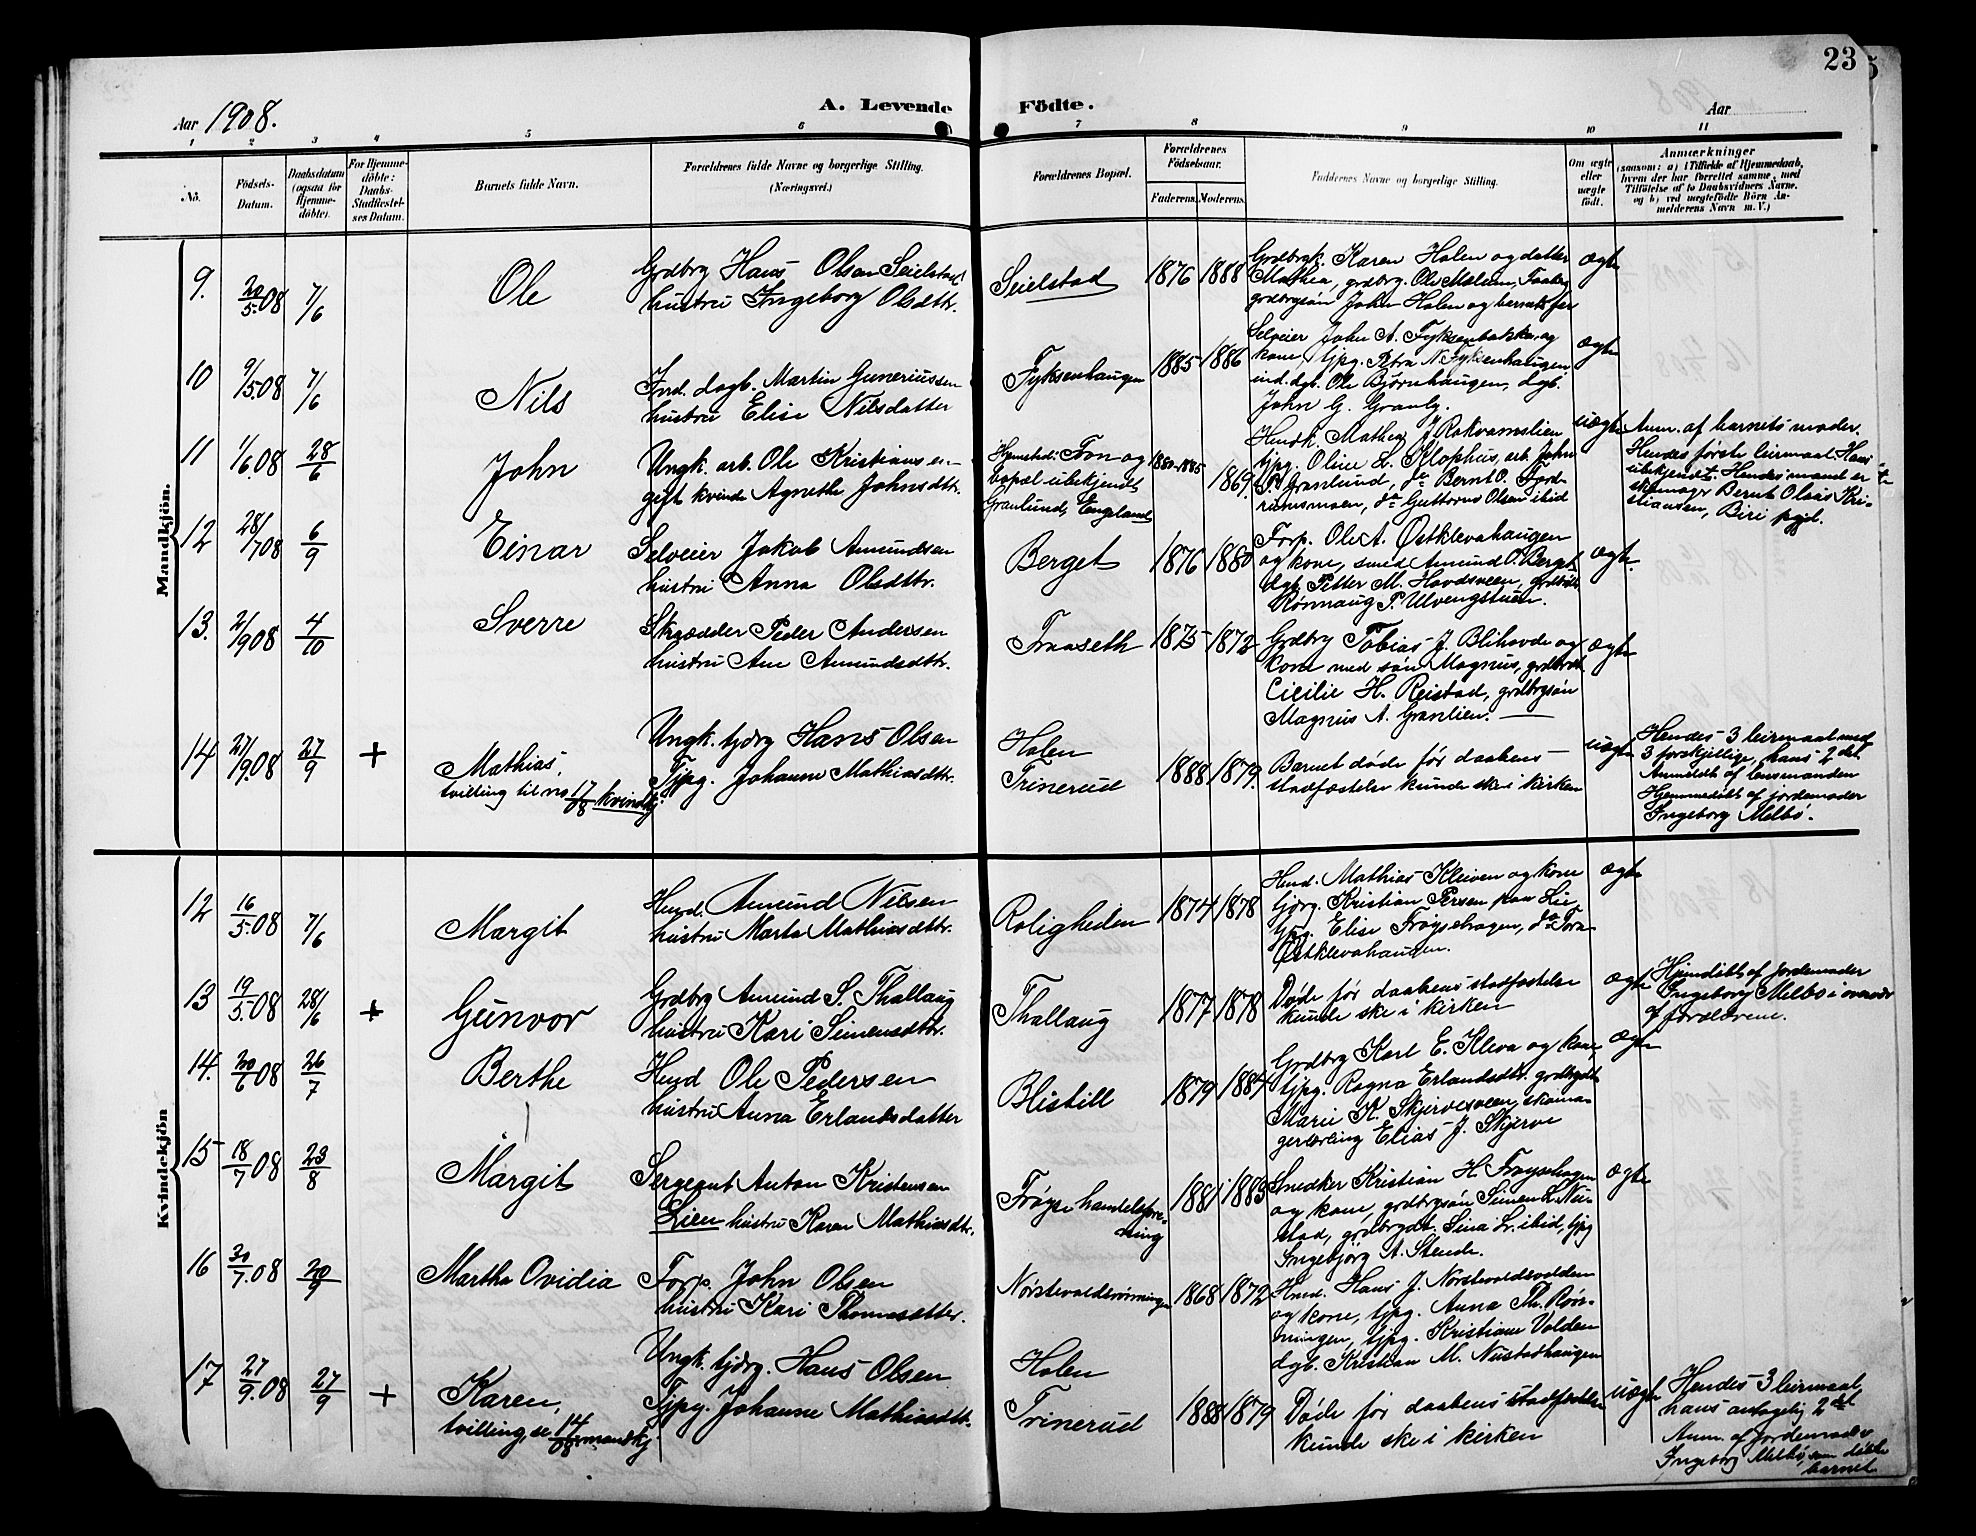 23
Aar 1908. A. Levende Födte. Aar
1 2 3 4 5 6 7 8 9 10 11
No.
Födsels-
Datum.
Daabsdatum
(ogsaa for
Hjemme-
döbte).
For Hjemme-
döbte:
Daabs-
Stadfæstel-
ses Datum.
Barnets fulde Navn.
Forældrenes fulde Navne og borgerlige Stilling.
(Næringsvei.)
Forældrenes Bopæl.
Forældrenes
Födselsaar.
Faderens. Moderens.
Faddernes Navne og borgerlige Stilling.
Om ægte
eller
uægte
födt.
Anmærkninger
(saasom: a) i Tilfælde af Hjemmedaab,
hvem der har forrettet samme, med
Tilföielse af to Daabsvidners Navne.
og b) ved uægtefödte Börn An-
melderens Navn m. V.)
Mandkjön.
9. 20/5 08 7/6 Ole
Grdbrg Hans Olsen Seielstad
hustru Ingeborg Olsdttr.
Seielstad 1876 1888
Grdbrgk. Karen Holen og datter
Mathea, grdbrg. Ole Mælum, Faaberg
grdbrgsön John Holen og barnets far
ægte
10 9/5 08 7/6 Nils
Ind. dagb. Martin Guneriussen
hustru Elise Nilsdatter
Fyksenhaugen 1885 1886
Selveier John A. Fyksenbakken og
kone, tjpg. Petra N. Fyksenhaugen
ind. dgb. Ole Bjørnhaugen, dgb.
John G. Granly.
ægte
11 1/6.08 28/6 John
Ungk. arb. Ole Kristiansen
gift kvinde Agnethe Johnsdttr.
Hjemsted: Fon og
bopæl ubekjendt
Granlund, England
1880-1885 1869.
Husmk. Mathea J. Rokvamslien
tjpg. Oline L. Klophus, arb. John
P. Granlund, do Bernt O. Ford-
rumsmoen, do Guttorm Olsen ibid
uægte
Anm. af barnets moder.
Hendes første leiermaal. Hans
ubekjendt. Hendes mand er
skomager Bernt Olaus Kri-
stiansen, Biri pgjd.
12 28/7 08 6/9 Einar
Selveier Jakob Amundsen
hustru Anna Olsdttr.
Berget 1876 1880
Forp. Ole A. Østklevahaugen
og kone, smed Amund O. Berget
dgb. Petter M. Hovdsveen, grdbrdt.
Rønnaug P. Ulvengstuen.
ægte.
13. 2/9 08 4/10 Sverre
Skrædder Peder Andersen
hustru Ane Amundsdttr.
Fraaseth 1875 1872
Grdbrg Tobias J. Blihovde og
kone med søn Magnus, grdbrdt.
Cicilie H. Reistad, grdbrgsön
Magnus A. Granlien.
ægte
14 27/9.08 27/9 +
Mathias,
tvilling til no 17/08 kvindkj.
Ungk. tjdrg Hans Olsen
Tjpg. Johanne Mathiasdttr.
Holen
Trinerud
1888 1879.
Barnet døde før daabens
stadfæstelse kunde ske i kirken
uægte
Hendes 3 leiermaal med
3 forskjellige, hans 2det.
Anmeldt af lensmanden
Hjemmedöbt af jordemoder
Ingeborg Melbö.
Kvindekjön
12 16/5 08 7/6 Margit
Husmd. Amund Nilsen
hustru Marta Mathiasdttr.
Roligheden 1874 1878
Husmd. Mathias Kleiven og kone
tjdrg. Kristian Persen paa Lie
tjpg. Elise Frøysehagen, do Tora
Østklevahaugen.
ægte
13 19/5.08 28/6 + Gunvor
Grdbrg Amund S. Thallaug
hustru Kari Simensdttr.
Thallaug 1877 1878
Døde før daabens stadfæstelse
kunde ske i kirken
ægte
Hjemdöbt af jordemoder
Ingeborg Melbö i overvær
af forældrene.
14. 20/6 08 26/7 Berthe
Husmd Ole Pedersen
hustru Anna Erlandsdatter
Blistill 1879 1884
Grdbrg Karl E. Kleva og kone,
tjpg. Ragna Erlandsdtr. grdbrgdt
Marie K. Skjervesveen, skoma-
gerlærling Elias J. Skjerve
ægte
15 18/7 08 23/8 Margit
Sergeant Anton Kristensen
Lien hustru Karen Mathiasdtr.
Frøyse handelsfore-
ning
1881 1883
Snedker Kristian H. Frøysehagen
og kone, grdbrgsön Simen L. Nu-
stad, grdbrgdt. Sina L. ibid, tjpg
Ingebjørg A. Stende.
ægte
16 30/7.08 20/9 Martha Ovidia
Forp. John Olsen
hustru Kari Thomasdtter.
Nørstevoldsrønningen 1868 1872
Husmd. Hans J. Nørstevoldsvolden
og kone, tjpg. Anna Th. Røn-
ningen, tjpg. Kristiane Volden
dgb. Kristian M. Nustadhaugen
17 27/9.08 27/9 +
Karen,
tvilling, se 14/08 mandkj
Ungk. tjdrg. Hans Olsen
Tjpg. Johanne Mathiasdtr.
Holen
Trinerud
1888 1879
Døde før daabens stadfæstelse
kunde ske i kirken
uægte
Hendes 3 leiermaal,
hans antagelig 2det
Anm. af jordemoder
Ingeborg Melbö, som döbte
barnet